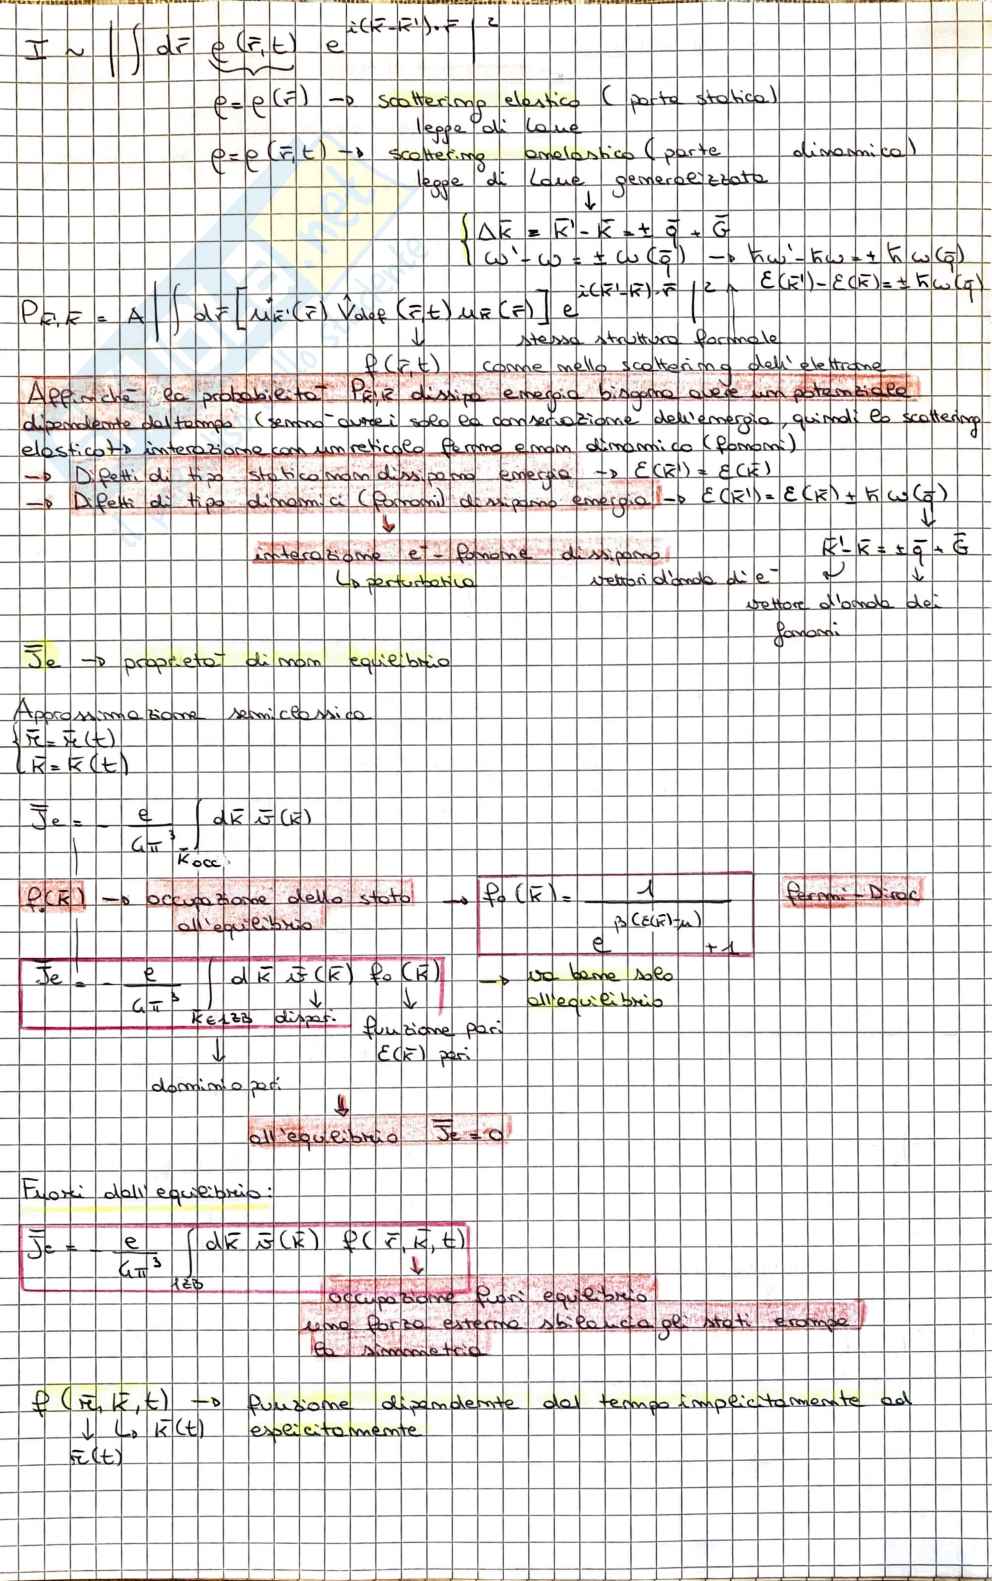 I ~ |∫ dr̄ ρ(r̄,t) e^{i(k̄-k̄')·r̄}|²
ρ=ρ(r̄) → scattering elastico (parte statica)
legge di Laue
ρ=ρ(r̄,t) → scattering anelastico (parte dinamica)
legge di Laue generalizzata
↓
{ Δk̄ = k̄'-k̄ = ± q̄ + Ḡ
ω'-ω = ± ω(q̄) → ħω'-ħω = ± ħω(q̄)
ε(k̄')-ε(k̄) = ± ħω(q̄)
P_{k̄',k̄} = A |∫ dr̄ [u*_{k̄'}(r̄) V̂def (r̄,t) u_{k̄}(r̄)] e^{i(k̄'-k̄)·r̄}|²
↓ stessa struttura formale
f(r̄,t) come nello scattering dell'elettrone
Affinché la probabilità P_{k̄',k̄} dissipa energia bisogna avere un potenziale
dipendente dal tempo (sennò avrei solo la conservazione dell'energia, quindi lo scattering
elastico → interazione con un reticolo fermo e non dinamico (fononi)
→ Difetti di tipo statico non dissipano energia → ε(k̄') = ε(k̄)
→ Difetti di tipo dinamici (fononi) dissipano energia → ε(k̄') = ε(k̄) ± ħω(q̄)
↓ ↓
interazione e⁻ - fonone dissipano k̄'-k̄ = ± q̄ + Ḡ
↳ perturbativa vettori d'onda di e⁻ ↓
vettore d'onda dei
fononi
J̄e → proprietà di non equilibrio
Approssimazione semiclassica
{ r̄ = r̄(t)
k̄ = k̄(t)
J̄e = - e/4π³ ∫_{k̄occ.} dk̄ v̄(k̄)
f₀(k̄) → occupazione dello stato → f₀(k̄) = 1/(e^{β(ε(k̄)-μ)}+1) Fermi-Dirac
all'equilibrio
J̄e = - e/4π³ ∫_{k̄∈1ZB} dk̄ v̄(k̄) f₀(k̄) → va bene solo
all'equilibrio
↓ dispari ↓ funzione pari
ε(k̄) pari
↓
dominio pari
↓
all'equilibrio J̄e = 0
Fuori dall'equilibrio:
J̄e = - e/4π³ ∫_{1ZB} dk̄ v̄(k̄) f(r̄,k̄,t)
↓
occupazione fuori equilibrio
una forza esterna sbilancia gli stati e rompe
la simmetria
f(r̄,k̄,t) → funzione dipendente dal tempo implicitamente ed
↓ ↳ k̄(t) esplicitamente
r̄(t)